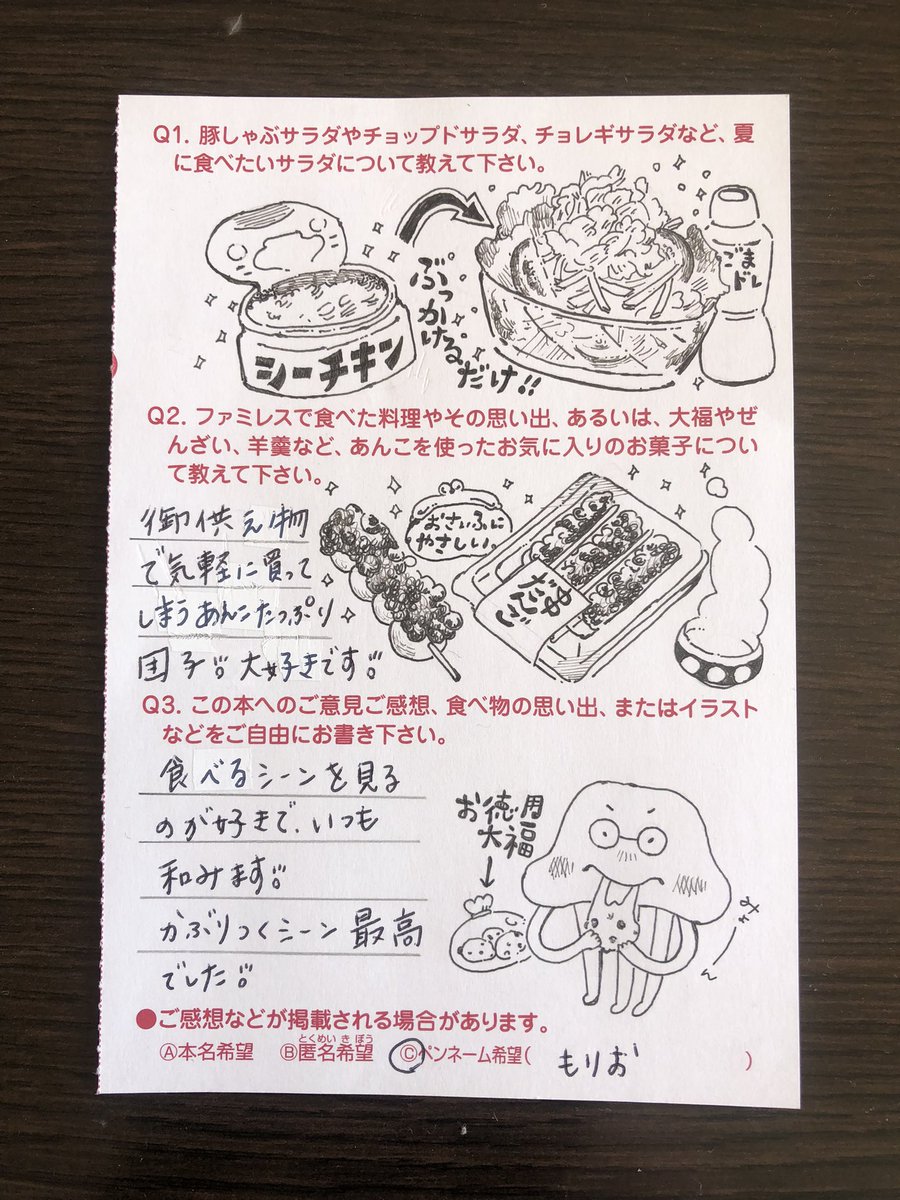 Q1. 豚しゃぶサラダやチョップドサラダ、チョレギサラダなど、夏
に食べたいサラダについて教えて下さい。
シーチキン
ぶっかける
だけ!!
ごま
ドレ
Q2. ファミレスで食べた料理やその思い出、あるいは、大福やぜ
んざい、羊羹など、あんこを使ったお気に入りのお菓子につい
て教えて下さい。
御供え物
で気軽に買って
しまうあんこたっぷり
団子!!大好きです!!
おさいふに
やさしい。
だんご
Q3. この本へのご意見ご感想、食べ物の思い出、またはイラスト
などをご自由にお書き下さい。
食べるシーンを見る
のが好きで、いつも
和みます!!
かぶりつくシーン最高
でした!!
お徳用
大福
●ご感想などが掲載される場合があります。
とくめいきぼう
Ⓐ本名希望 Ⓑ匿名希望 Ⓒペンネーム希望( もりお )